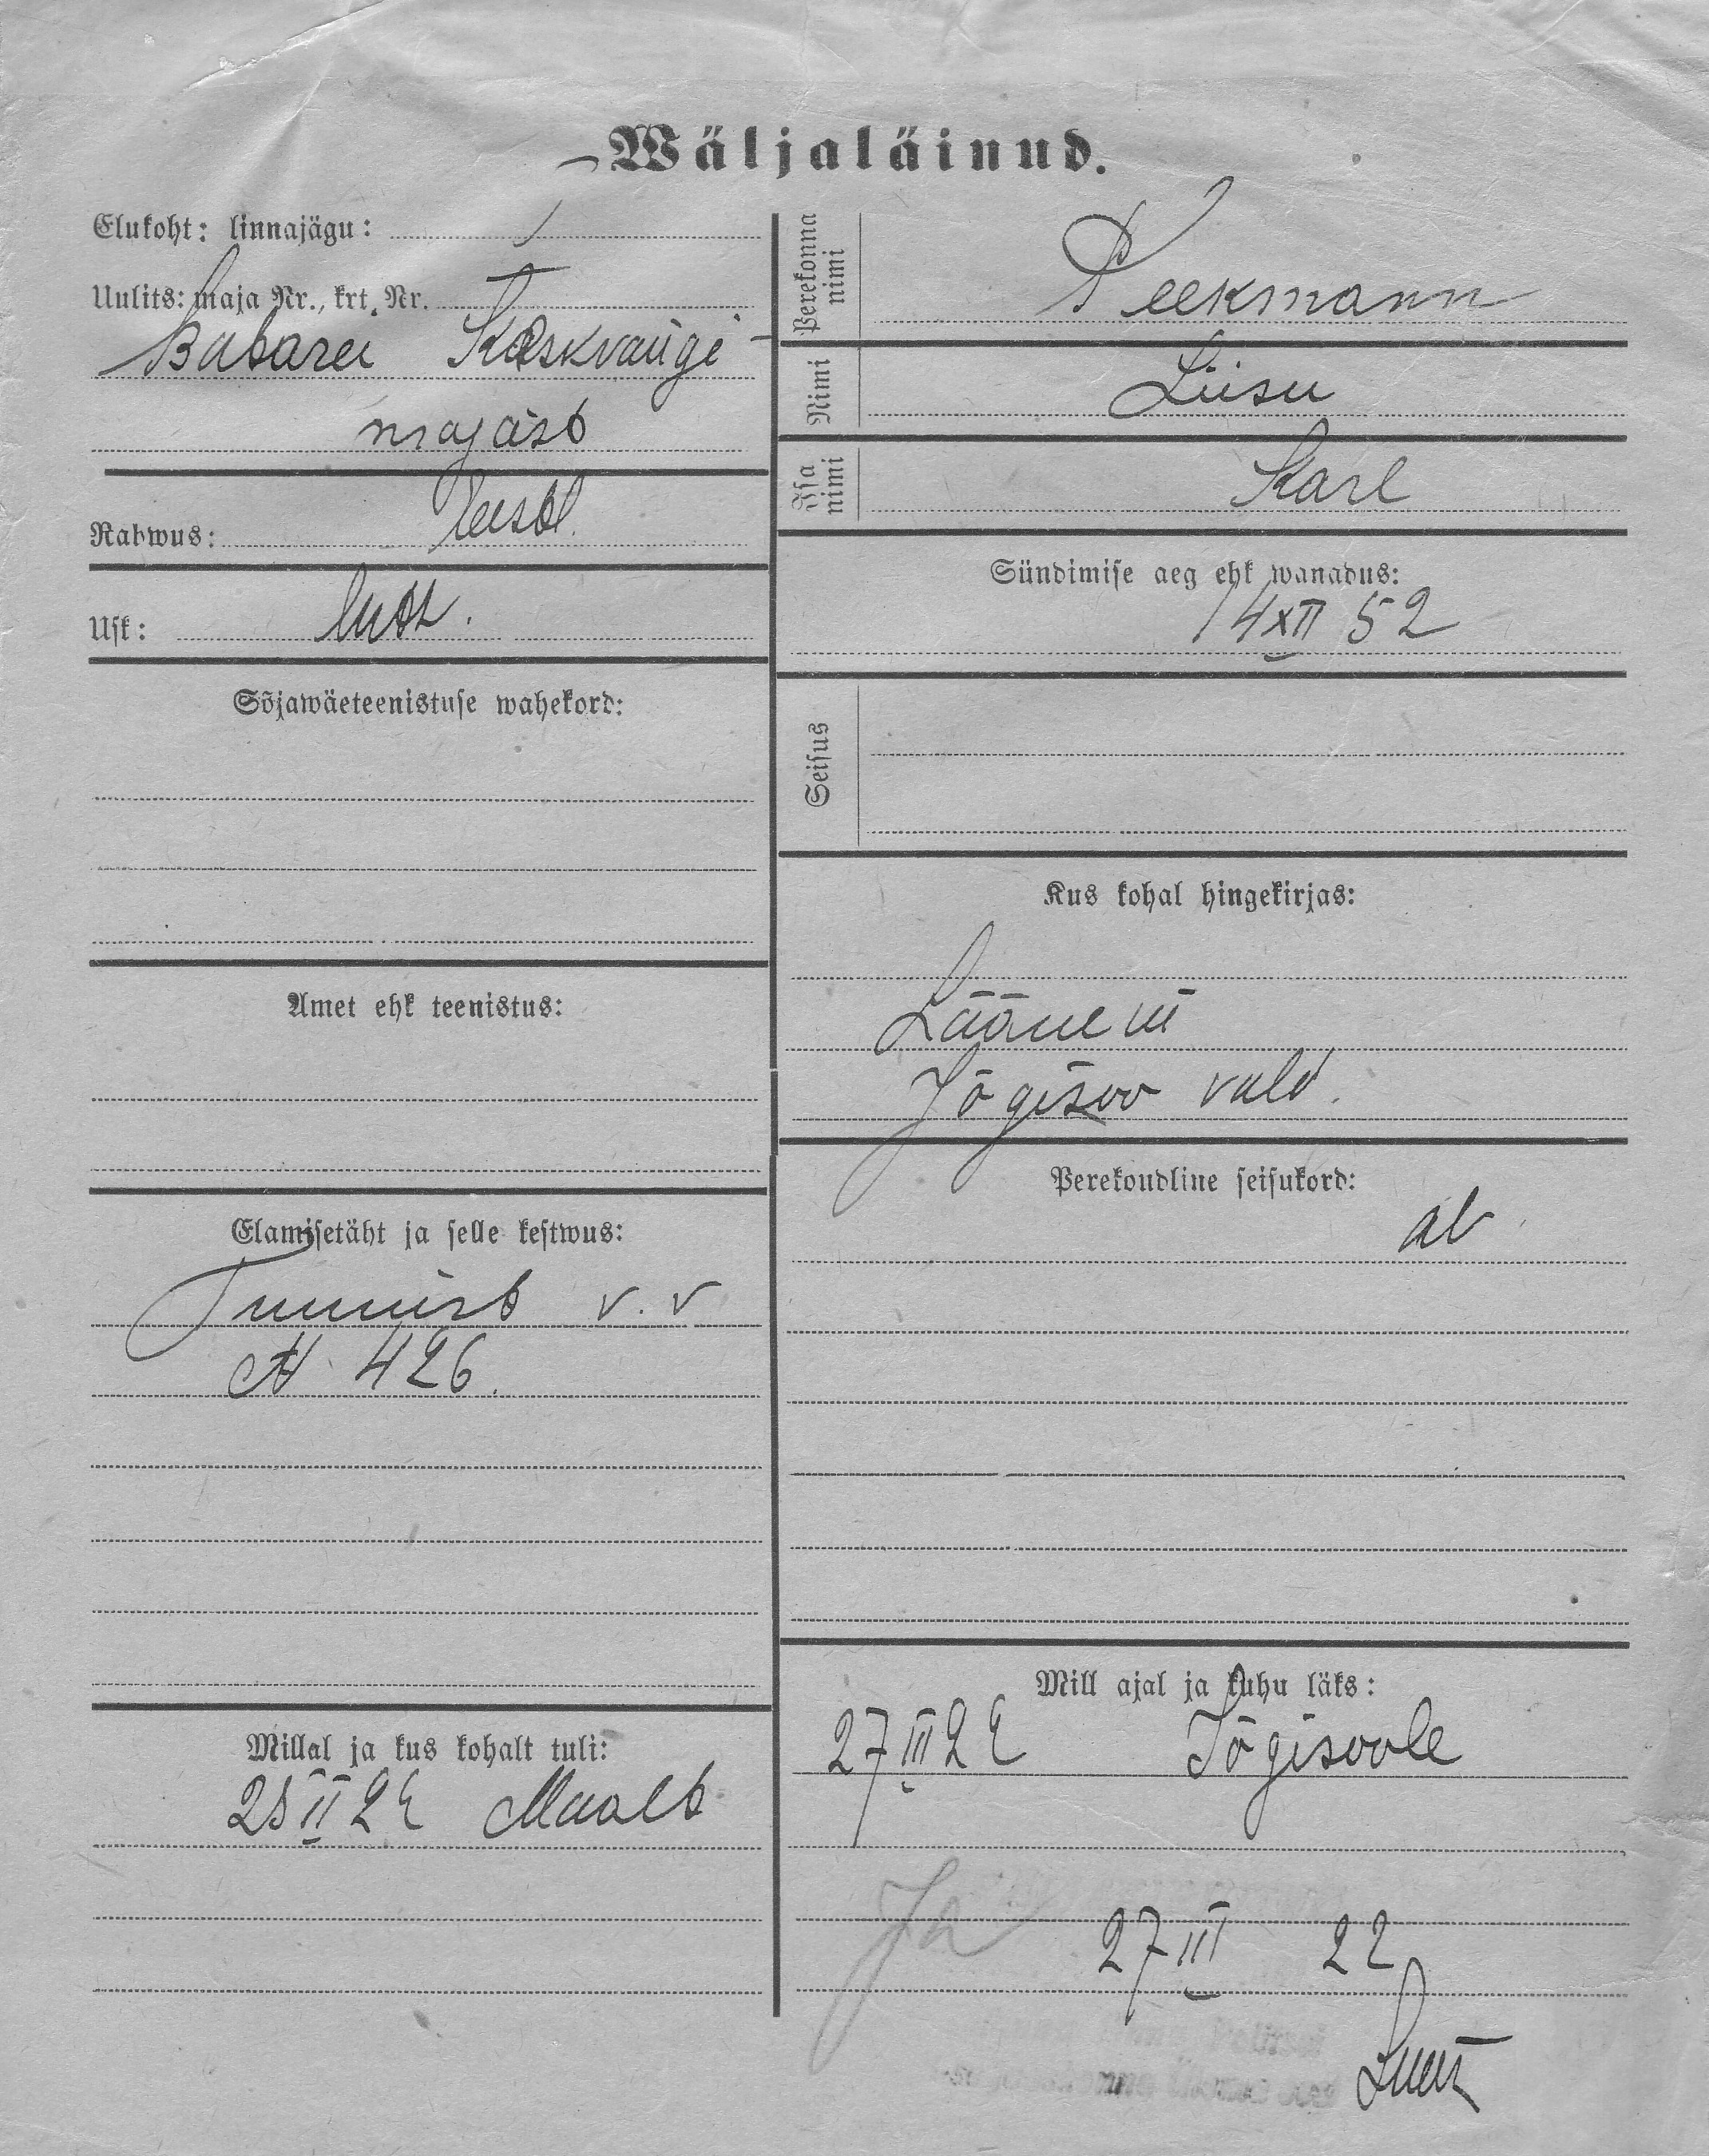 Wäljaläinud.
Elukoht: linnajägu:
Uulits: maja Nr., krt. Nr.
Batarei Keskvangi
majast
Rahwus: Eestl.
Usk: luth.
Sõjawäeteenistuse wahekord:
Amet ehk teenistus:
Elamisetäht ja selle kestwus:
Tunnist v. v
N 426.
Millal ja kus kohalt tuli:
28 II 22 Maalt
Perekonna nimi
Peekmann
Nimi
Liisu
Isa nimi
Karl
Sündimise aeg ehk wanadus:
14 XII 52
Seisus
Kus kohal hingekirjas:
Lääne m
Jõgisoo vald.
Perekondline seisukord:
ab
Mill ajal ja kuhu läks:
27 III 22 Jõgisoole
Ja 27 III 22